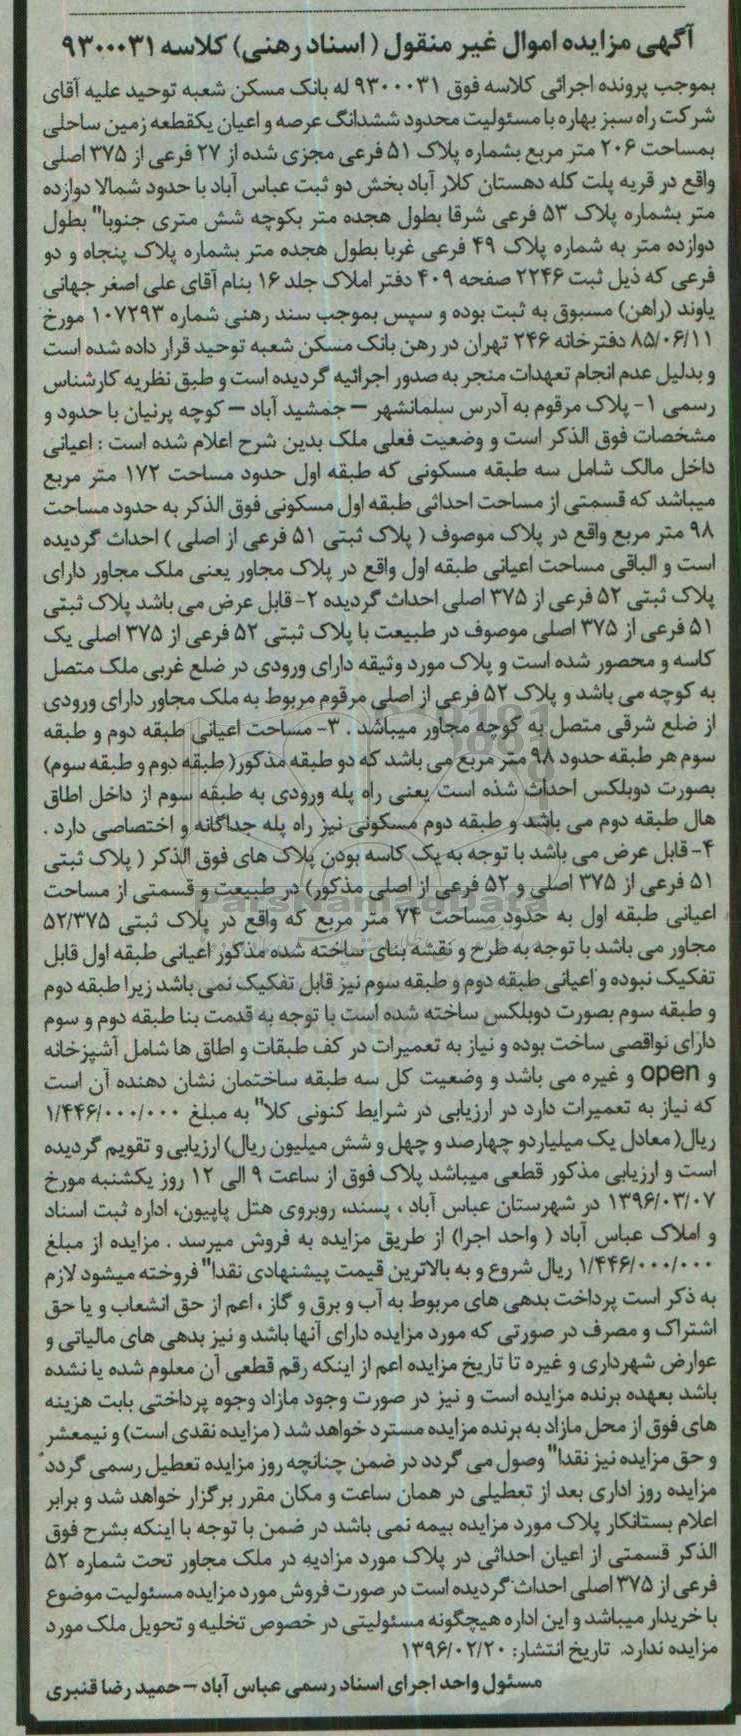 آگهی مزایده اموال غیر منقول ( اسناد رهنی) کلاسه ۹۳۰۰۰۳۱
بموجب پرونده اجرائی کلاسه فوق ۹۳۰۰۰۳۱ له بانک مسکن شعبه توحید علیه آقای
شرکت راه سبز بهاره با مسئولیت محدود ششدانگ عرصه و اعیان یکقطعه زمین ساحلی
بمساحت ۲۰۶ متر مربع بشماره پلاک ۵۱ فرعی مجزی شده از ۲۷ فرعی از ۳۷۵ اصلی
واقع در قریه پلت کله دهستان کلار آباد بخش دو ثبت عباس آباد با حدود شمالا دوازده
متر بشماره پلاک ۵۳ فرعی شرقا بطول هجده متر بکوچه شش متری جنوبا" بطول
دوازده متر به شماره پلاک ۴۹ فرعی غربا بطول هجده متر بشماره پلاک پنجاه و دو
فرعی که ذیل ثبت ۲۲۴۶ صفحه ۴۰۹ دفتر املاک جلد ۱۶ بنام آقای علی اصغر جهانی
یاوند (راهن) مسبوق به ثبت بوده و سپس بموجب سند رهنی شماره ۱۰۷۲۹۳ مورخ
۸۵/۰۶/۱۱ دفترخانه ۲۴۶ تهران در رهن بانک مسکن شعبه توحید قرار داده شده است
و بدلیل عدم انجام تعهدات منجر به صدور اجرائیه گردیده است و طبق نظریه کارشناس
رسمی ۱- پلاک مرقوم به آدرس سلمانشهر – جمشید آباد – کوچه پرنیان با حدود و
مشخصات فوق الذکر است و وضعیت فعلی ملک بدین شرح اعلام شده است : اعیانی
داخل مالک شامل سه طبقه مسکونی که طبقه اول حدود مساحت ۱۷۲ متر مربع
میباشد که قسمتی از مساحت احداثی طبقه اول مسکونی فوق الذکر به حدود مساحت
۹۸ متر مربع واقع در پلاک موصوف ( پلاک ثبتی ۵۱ فرعی از اصلی ) احداث گردیده
است و الباقی مساحت اعیانی طبقه اول واقع در پلاک مجاور یعنی ملک مجاور دارای
پلاک ثبتی ۵۲ فرعی از ۳۷۵ اصلی احداث گردیده ۲- قابل عرض می باشد پلاک ثبتی
۵۱ فرعی از ۳۷۵ اصلی موصوف در طبیعت با پلاک ثبتی ۵۲ فرعی از ۳۷۵ اصلی یک
کاسه و محصور شده است و پلاک مورد وثیقه دارای ورودی در ضلع غربی ملک متصل
به کوچه می باشد و پلاک ۵۲ فرعی از اصلی مرقوم مربوط به ملک مجاور دارای ورودی
از ضلع شرقی متصل به کوچه مجاور میباشد . ۳- مساحت اعیانی طبقه دوم و طبقه
سوم هر طبقه حدود ۹۸ متر مربع می باشد که دو طبقه مذکور( طبقه دوم و طبقه سوم)
بصورت دوبلکس احداث شده است یعنی راه پله ورودی به طبقه سوم از داخل اطاق
هال طبقه دوم می باشد و طبقه دوم مسکونی نیز راه پله جداگانه و اختصاصی دارد .
۴- قابل عرض می باشد با توجه به یک کاسه بودن پلاک های فوق الذکر ( پلاک ثبتی
۵۱ فرعی از ۳۷۵ اصلی و ۵۲ فرعی از اصلی مذکور) در طبیعت و قسمتی از مساحت
اعیانی طبقه اول به حدود مساحت ۷۴ متر مربع که واقع در پلاک ثبتی ۵۲/۳۷۵
مجاور می باشد با توجه به طرح و نقشه بنای ساخته شده مذکور اعیانی طبقه اول قابل
تفکیک نبوده و اعیانی طبقه دوم و طبقه سوم نیز قابل تفکیک نمی باشد زیرا طبقه دوم
و طبقه سوم بصورت دوبلکس ساخته شده است با توجه به قدمت بنا طبقه دوم و سوم
دارای نواقصی ساخت بوده و نیاز به تعمیرات در کف طبقات و اطاق ها شامل آشپزخانه
و open و غیره می باشد و وضعیت کل سه طبقه ساختمان نشان دهنده آن است
که نیاز به تعمیرات دارد در ارزیابی در شرایط کنونی کلا" به مبلغ ۱/۴۴۶/۰۰۰/۰۰۰
ریال( معادل یک میلیاردو چهارصد و چهل و شش میلیون ریال) ارزیابی و تقویم گردیده
است و ارزیابی مذکور قطعی میباشد پلاک فوق از ساعت ۹ الی ۱۲ روز یکشنبه مورخ
۱۳۹۶/۰۳/۰۷ در شهرستان عباس آباد ، پسند، روبروی هتل پاپیون، اداره ثبت اسناد
و املاک عباس آباد ( واحد اجرا) از طریق مزایده به فروش میرسد . مزایده از مبلغ
۱/۴۴۶/۰۰۰/۰۰۰ ریال شروع و به بالاترین قیمت پیشنهادی نقدا" فروخته میشود لازم
به ذکر است پرداخت بدهی های مربوط به آب و برق و گاز ، اعم از حق انشعاب و یا حق
اشتراک و مصرف در صورتی که مورد مزایده دارای آنها باشد و نیز بدهی های مالیاتی و
عوارض شهرداری و غیره تا تاریخ مزایده اعم از اینکه رقم قطعی آن معلوم شده یا نشده
باشد بعهده برنده مزایده است و نیز در صورت وجود مازاد وجوه پرداختی بابت هزینه
های فوق از محل مازاد به برنده مزایده مسترد خواهد شد ( مزایده نقدی است) و نیمعشر
و حق مزایده نیز نقدا" وصول می گردد در ضمن چنانچه روز مزایده تعطیل رسمی گردد
مزایده روز اداری بعد از تعطیلی در همان ساعت و مکان مقرر برگزار خواهد شد و برابر
اعلام بستانکار پلاک مورد مزایده بیمه نمی باشد در ضمن با توجه با اینکه بشرح فوق
الذکر قسمتی از اعیان احداثی در پلاک مورد مزادیه در ملک مجاور تحت شماره ۵۲
فرعی از ۳۷۵ اصلی احداث گردیده است در صورت فروش مورد مزایده مسئولیت موضوع
با خریدار میباشد و این اداره هیچگونه مسئولیتی در خصوص تخلیه و تحویل ملک مورد
مزایده ندارد. تاریخ انتشار: ۱۳۹۶/۰۲/۲۰
مسئول واحد اجرای اسناد رسمی عباس آباد – حمید رضا قنبری
ParsNamadData